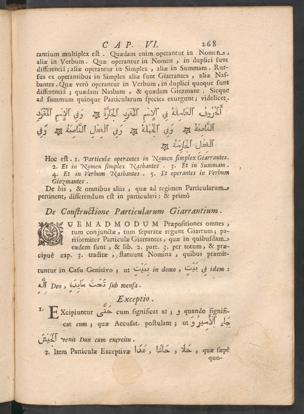 CAP. VI. 268
rantium multiplex est. Quædam enim operantur in Nomen,
aliæ in Verbum. Quæ operantur in Nomen, in duplici sunt
differentia; aliæ operantur in Simplex, aliæ in Summam. Rur-
sus ex operantibus in Simplex aliæ sunt Giarrantes, aliæ Nas-
bantes. Quæ verò operantur in Verbum, in duplici quoque sunt
differentia; quædam Nasbant, & quædam Giezmant. Sicque
ad summum quinque Particularum species exurgunt; videlicet.
الحروف العاملة في الاسم المفرد الجارة وفي الاسم المفرد
الناصبة وفي الجملة وفي الفعل الناصبة وفي
الفعل الجازمة
Hoc est. 1. Particulæ operantes in Nomen simplex Giarrantes.
2. Et in Nomen simplex Nasbantes. 3. Et in Summam.
4. Et in Verbum Nasbantes. 5. Et operantes in Verbum
Giezmantes.
De his, & omnibus aliis, quæ ad regimen Particularum
pertinent, differendum est in particulari: & primò
De Constructione Particularum Giarrantium.
QUEMADMODUM Præpositiones omnes,
tum conjunctæ, tum seperatæ regunt Giarrum; pa-
riformiter Particulæ Giarrantes, quæ in quibusdam
eædem sunt, & lib. 2. part. 3. per totum, & præ-
cipuè cap. 3. traditæ, statuunt Nomina, quibus præmit-
tuntur in Casu Genitivo, ut ببيت in domo, في بيت idem:
لله Deo, تحت مايدة sub mensa.
Exceptio.
1. Excipiuntur حتى cum significet ut; و quando signifi-
cat cum; quæ Accusat. postulant; ut جاء الامير و
الجيش venit Dux cum exercitu.
2. Item Particulæ Exceptivæ خلا, حاشا, عدا, quæ sæpè
quo-